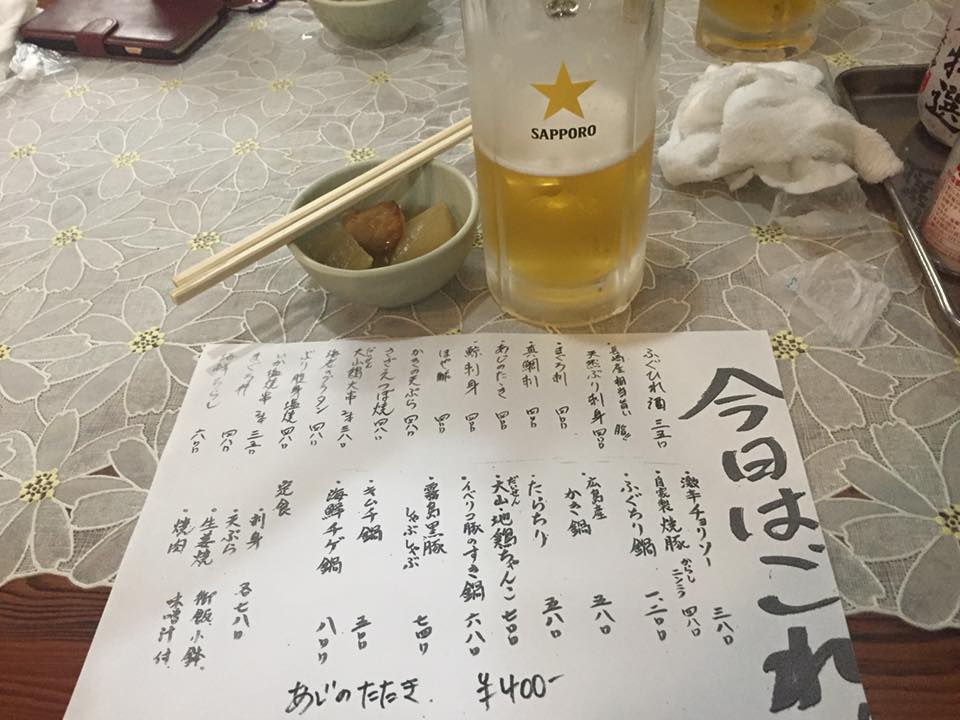 SAPPORO
特選
今日はこれ
ふぐひれ酒 三五〇
天然ぶり刺身 四〇〇
まぐろ刺 四〇〇
真鯛刺 四〇〇
あじのたたき 四〇〇
鯨刺身 四〇〇
ほや酢 四〇〇
かきの天ぷら 四八〇
さざえつぼ焼 四八〇
大山鶏大串 2本 三八〇
海老グラタン 四八〇
ぶり腹身塩焼 四八〇
いか塩焼串 2本 三五〇
四八〇
六八〇
・激辛チョリソー 三八〇
・自家製焼豚 からし ニンニク 四八〇
・ふぐちり鍋 一、二〇〇
・広島産 かき鍋 五八〇
・たらちり 五八〇
・大山地鶏ちゃんこ 七〇〇
だいせん
・イベリコ豚のすき鍋 六八〇
・霧島黒豚 しゃぶしゃぶ 七四〇
・キムチ鍋 五〇〇
・海鮮チゲ鍋 八〇〇
定食
・刺身
・天ぷら
・生姜焼
・焼肉
各七八〇
御飯小鉢
味噌汁付
あじのたたき ¥400-